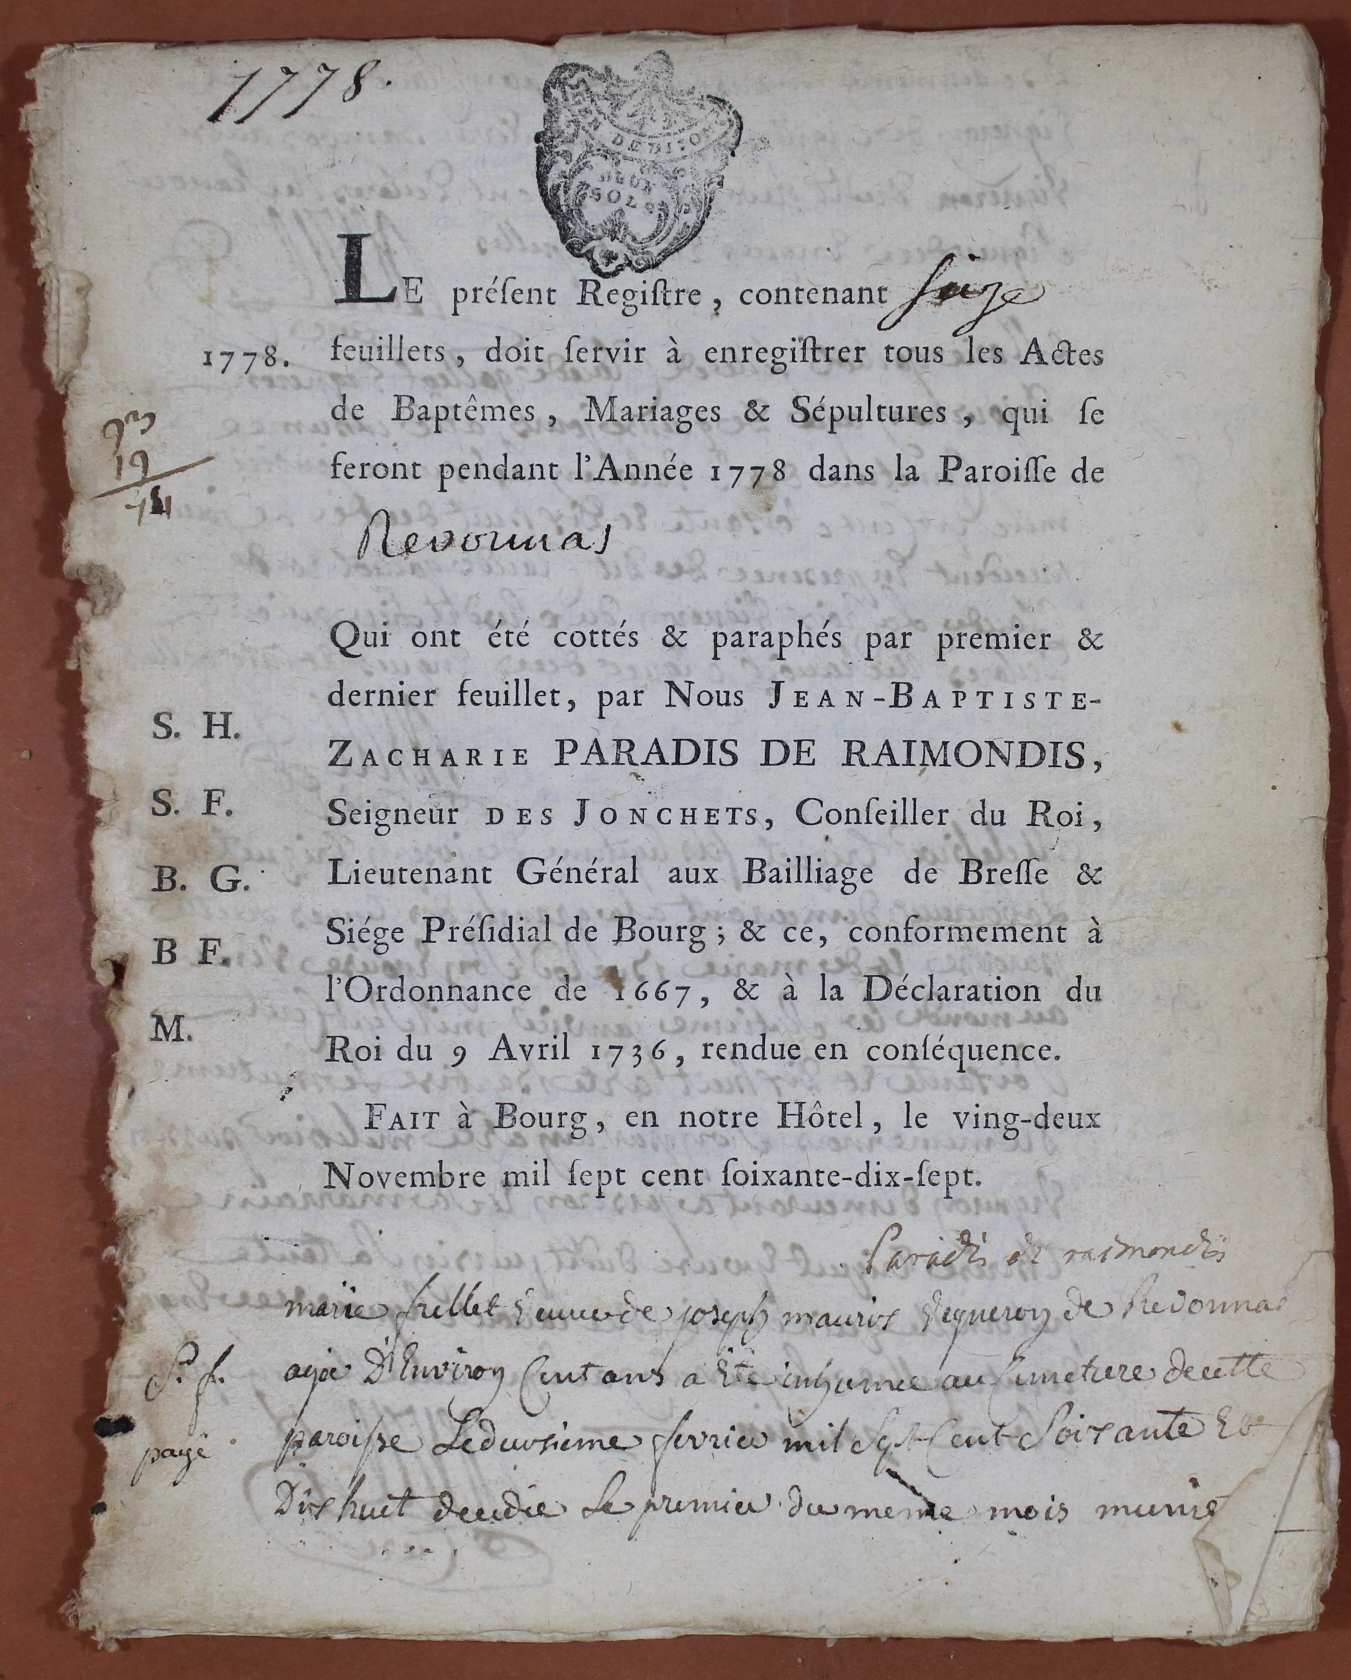 1778.
DEUX
SOLS
LE préſent Regiſtre, contenant seize
1778. feuillets, doit ſervir à enregiſtrer tous les Actes
de Baptêmes, Mariages & Sépultures, qui ſe
feront pendant l'Année 1778 dans la Paroiſſe de
Revonnas
Qui ont été cottés & paraphés par premier &
dernier feuillet, par Nous JEAN-BAPTISTE-
S. H. ZACHARIE PARADIS DE RAIMONDIS,
S. F. Seigneur DES JONCHETS, Conſeiller du Roi,
B. G. Lieutenant Général aux Bailliage de Breſſe &
B F. Siége Préſidial de Bourg; & ce, conformement à
l'Ordonnance de 1667, & à la Déclaration du
M. Roi du 9 Avril 1736, rendue en conſéquence.
FAIT à Bourg, en notre Hôtel, le ving-deux
Novembre mil ſept cent ſoixante-dix-ſept.
Paradis de raimondis
marie frillet veuve de joseph mauris vigneron de Revonnas
S. f. agée D'Environ Cent ans a Eté inhumée au Cimetiere de cette
payé paroisse Le deuxsieme fevrier mil Sept Cent Soixante Et
Dixhuit decedée Le premier du meme mois munie